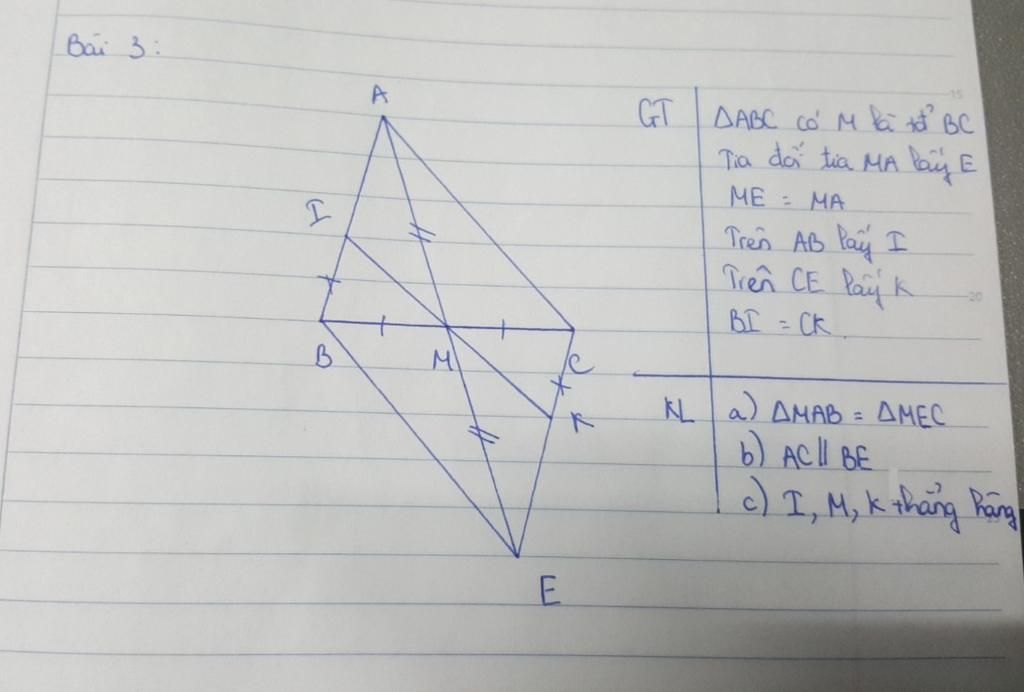 Bài 3:
A
I
B
M
C
K
E
GT
ΔABC có M là tđ BC
Tia đối tia MA lấy E
ME = MA
Trên AB lấy I
Trên CE lấy K
BI = CK
KL
a) ΔMAB = ΔMEC
b) AC // BE
c) I, M, K thẳng hàng
15
20